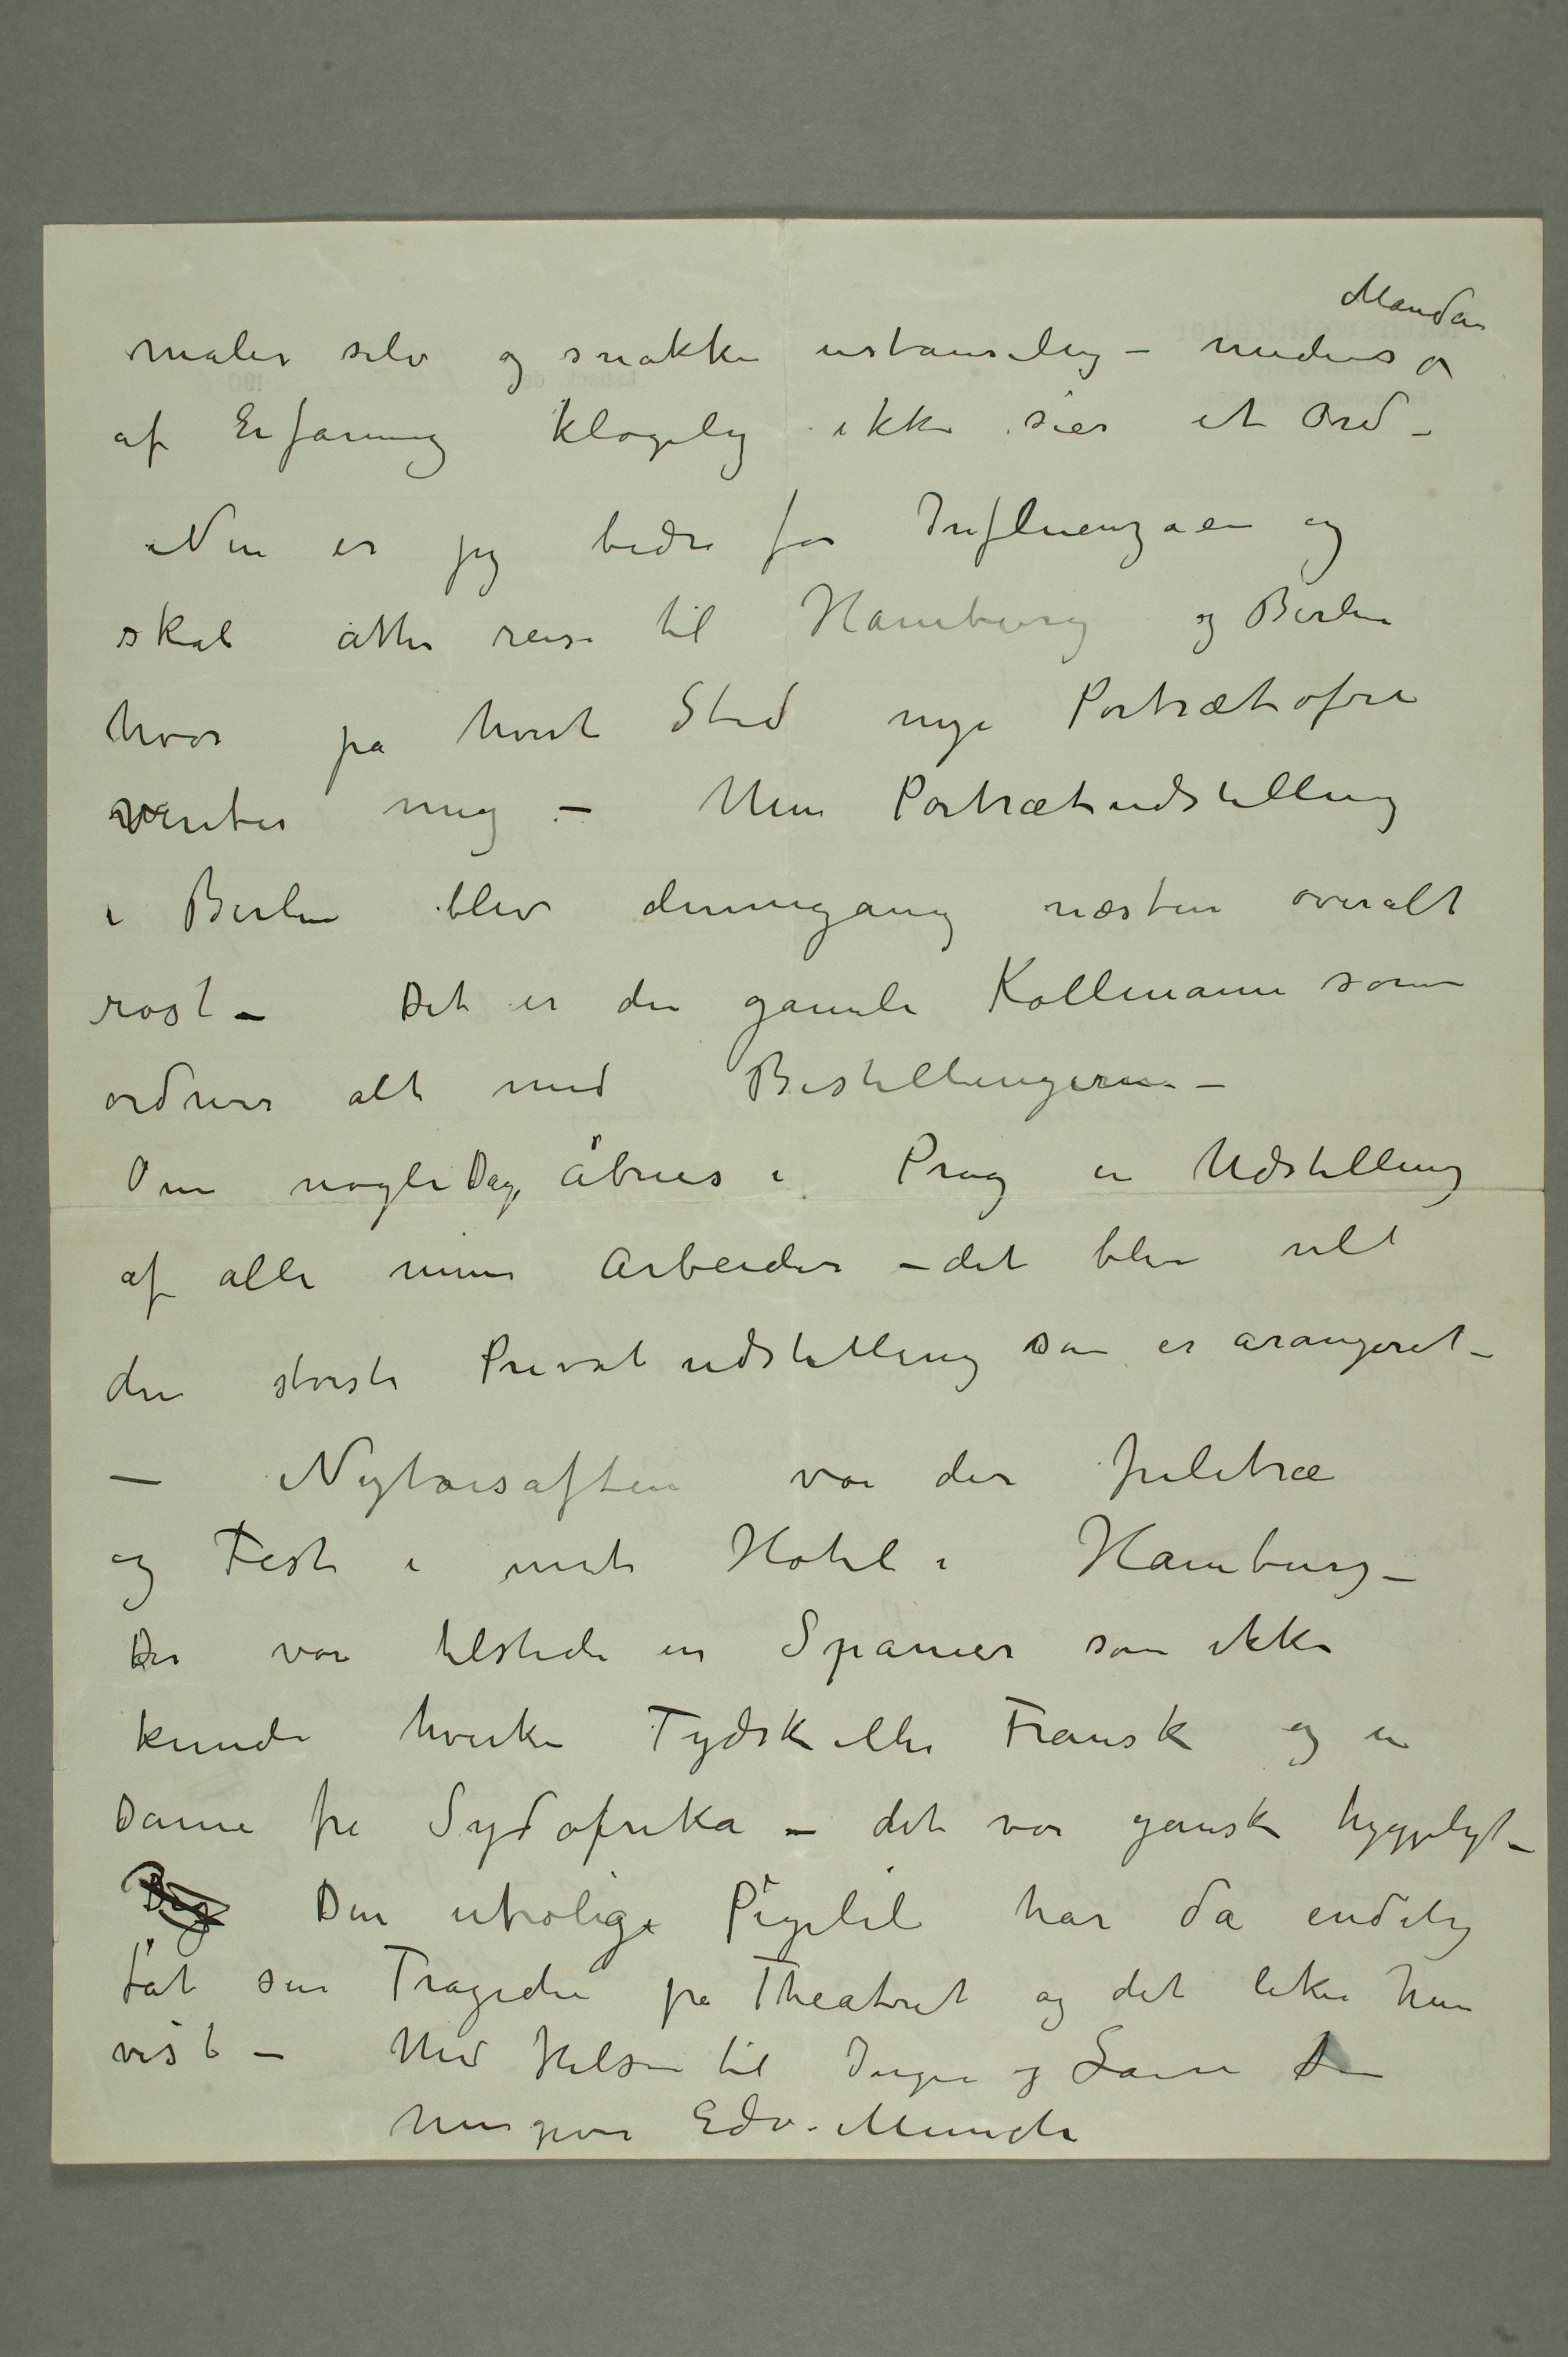 Manden
maler selv og snakker ustanselig – medens jeg
af Erfaring klogelig ikke sier et Ord –
Nu er jeg bedre for Influenzaen og
skal atter reise til Hamburg og Berlin
hvor på hvert Sted nye Portrætofre
venter mig – Min Portrætudstilling
i Berlin blev dennegang næsten overalt
rost – Det er den gamle Kollmann som
ordner alt med Bestillingerne –
Om nogle Dage åbnes i Prag en Udstilling
af alle mine Arbeider – det blir vel
den største Privatudstilling som er arangeret –
– Nytårsaften var der Juletræ
og Fest i mit Hotel i Hamburg –
Der var tilstede en Spanier som ikke
kunde hverken Tydsk eller Fransk og en
Dame fra Sydafrika – det var ganske hyggeligt –
Den utrolige Pigelil har da endelig
fåt sin Tragedie på Theatret og det liker hun
vist – Med Hilsen til Inger og Laura Din
hengivne Edv. Munch